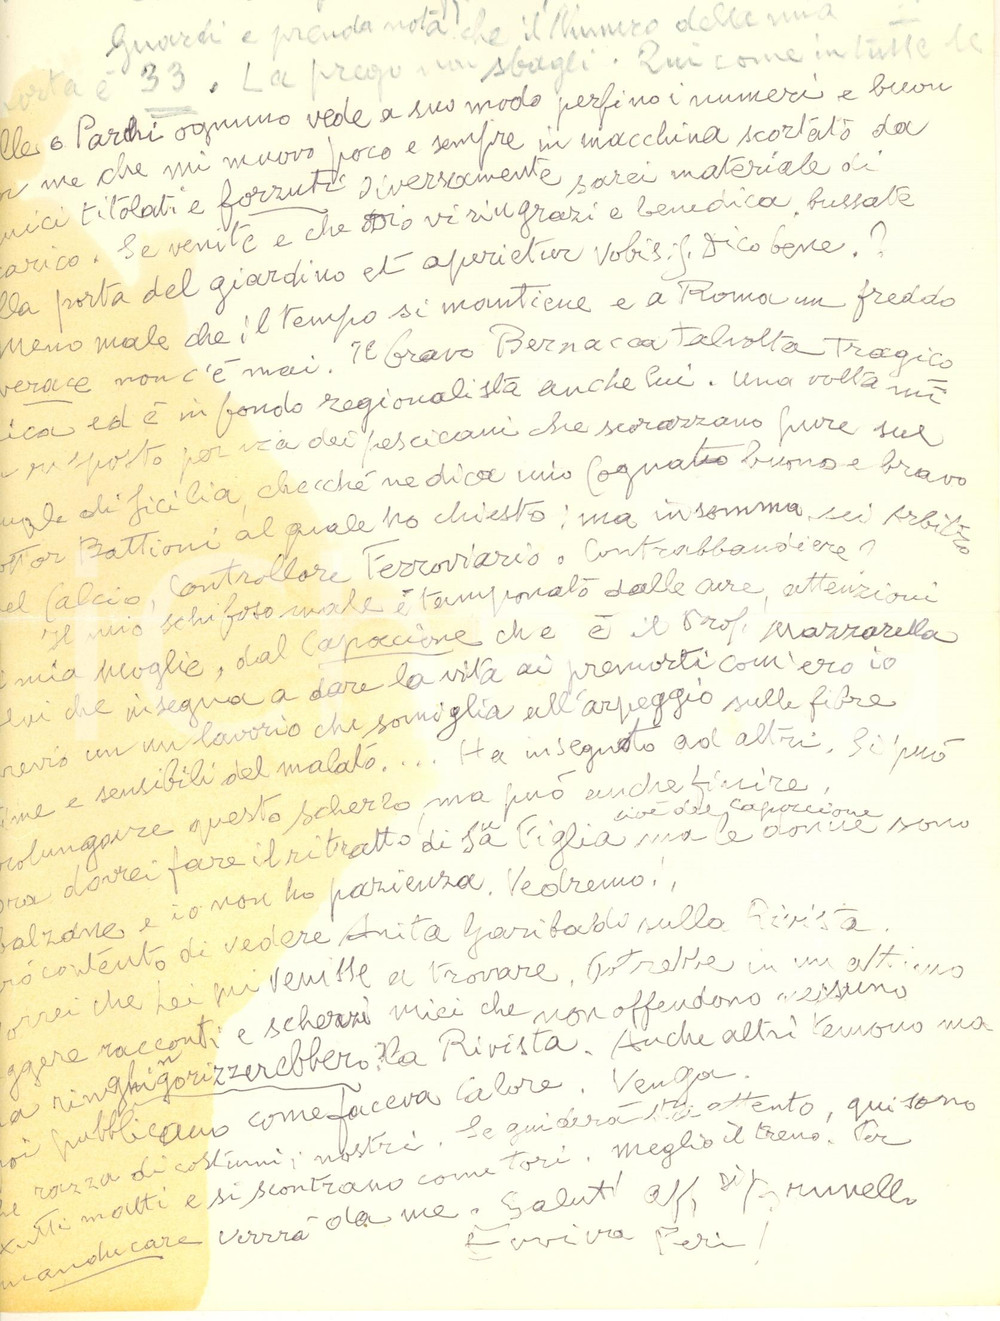 Guardi e prenda nota!! che il Numero della mia
porta è 33. La prego non sbagli. Qui come in tutte le
Parchi ognuno vede a suo modo perfino i numeri e buon
me che mi muovo poco e sempre in macchina scortato da
mici titolati e forzuti diversamente sarei materiale di
carico. Se venite e che Dio vi ringrazi e benedica, bussate
lla porta del giardino et aperietur vobis. Dico bene.?
meno male che il tempo si mantiene e a Roma un freddo
verace non c'è mai. Il bravo Bernacca talvolta tragico
ica ed è in fondo regionalista anche lui. Una volta mi
risposto per via dei pescicani che scorazzano pure sul
di Sicilia, checché ne dica mio Cognato buono e bravo
ottor Battioni al quale ho chiesto: ma insomma, sei Arbitro
el Calcio, Controllore Ferroviario o Contrabbandiere?
Il mio schifoso male è tamponato dalle cure, attenzioni
i mia moglie, dal Capoccione che è il Prof. Mazzarella
lui che insegna a dare la vita ai premorti com'ero io
un lavorio che somiglia all'arpeggio sulle fibre
time e sensibili del malato.... Ha insegnato ad altri. Si può
rolungare questo scherzo, ma può anche finire.
ora dovrei fare il ritratto di Sua Figlia cioè del Capoccione ma le donne sono
balzane e io non ho pazienza. Vedremo!,
rò contento di vedere Anita Garibaldi sulla Rivista.
orrei che Lei mi venisse a trovare. Potrebbe in un attimo
ggere racconti e scherzi miei che non offendono nessuno
ma ringhingorizzerebbero la Rivista. Anche altri temono ma
poi pubblicano come faceva Calore. Venga.
he razza di costumi, i nostri. Se guiderà stia attento, qui sono
tutti matti e si scontrano come tori. meglio il treno. Per
manducare verrà da me. Saluti aff. Brunello
Evviva Peri!